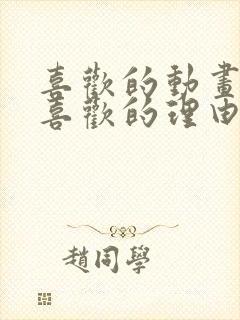 喜歡的動畫
喜歡的理由
趙同學